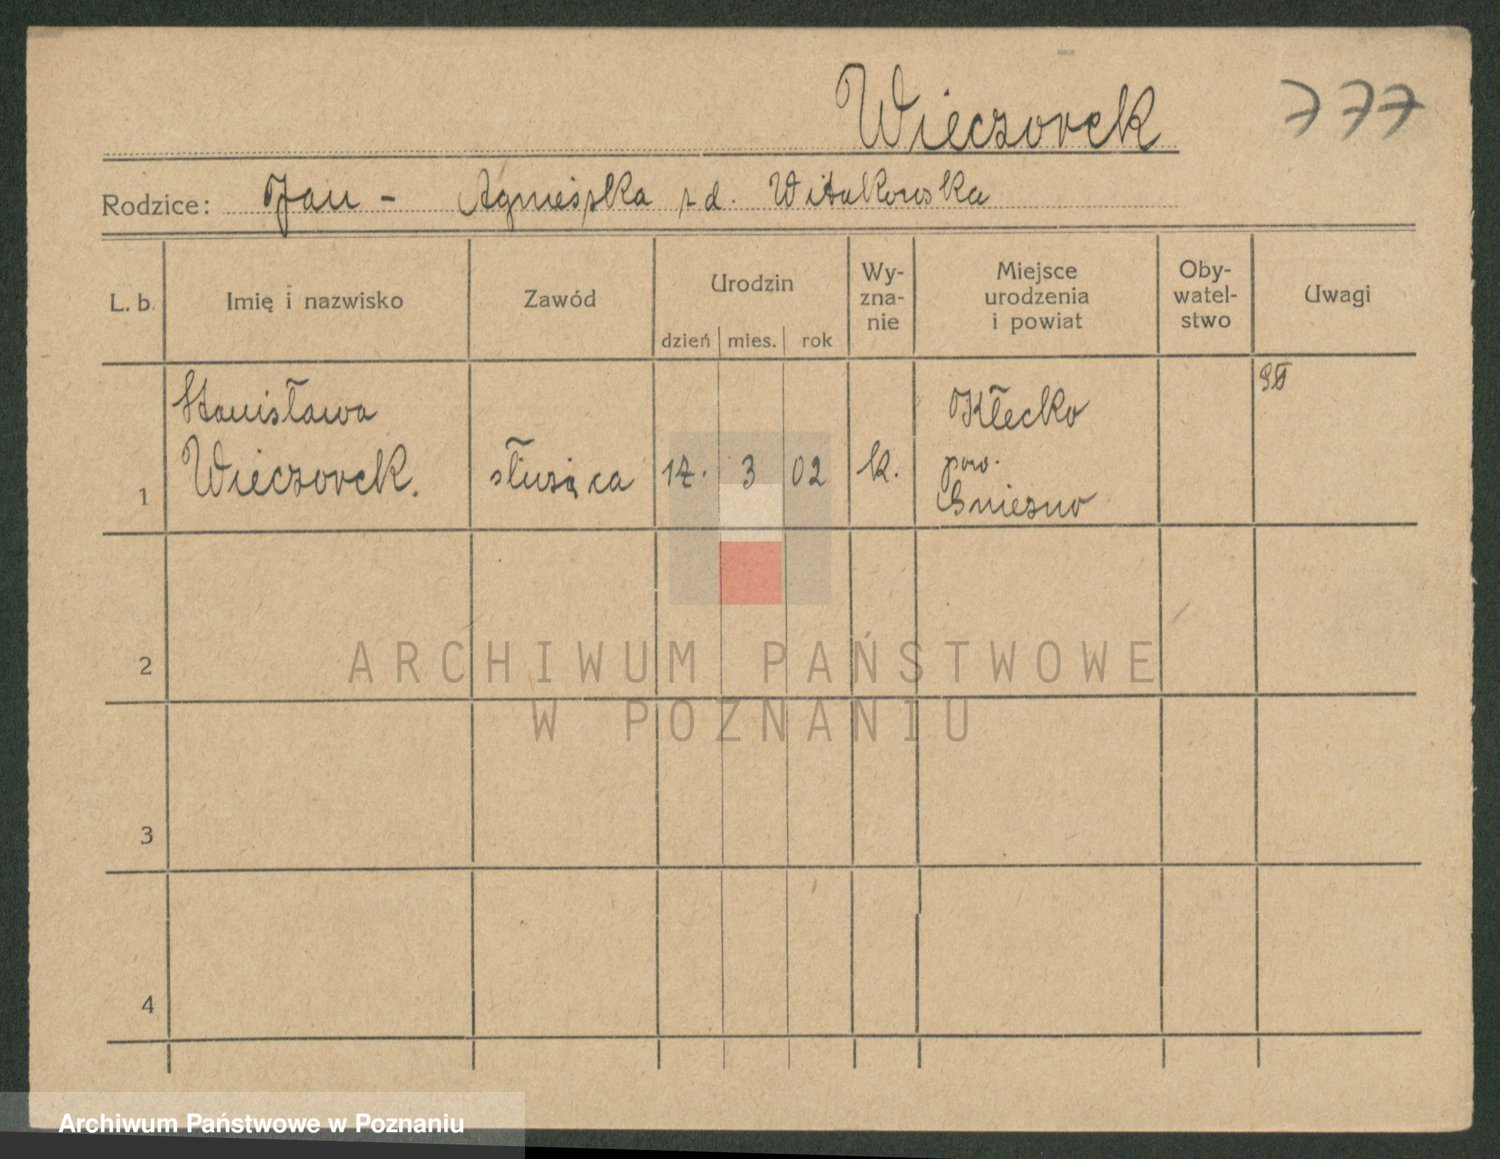 Wieczorek 777
Rodzice: Jan - Agnieszka z d. Witakowska
L. b. Imię i nazwisko Zawód Urodzin Wy-zna-nie Miejsce urodzenia i powiat Oby-watel-stwo Uwagi
dzień mies. rok
Stanisława
Wieczorek.
1 służąca 17. 3 02 k. Kłecko
pow.
Gniezno
2
ARCHIWUM PAŃSTWOWE
W POZNANIU
3
4
Archiwum Państwowe w Poznaniu